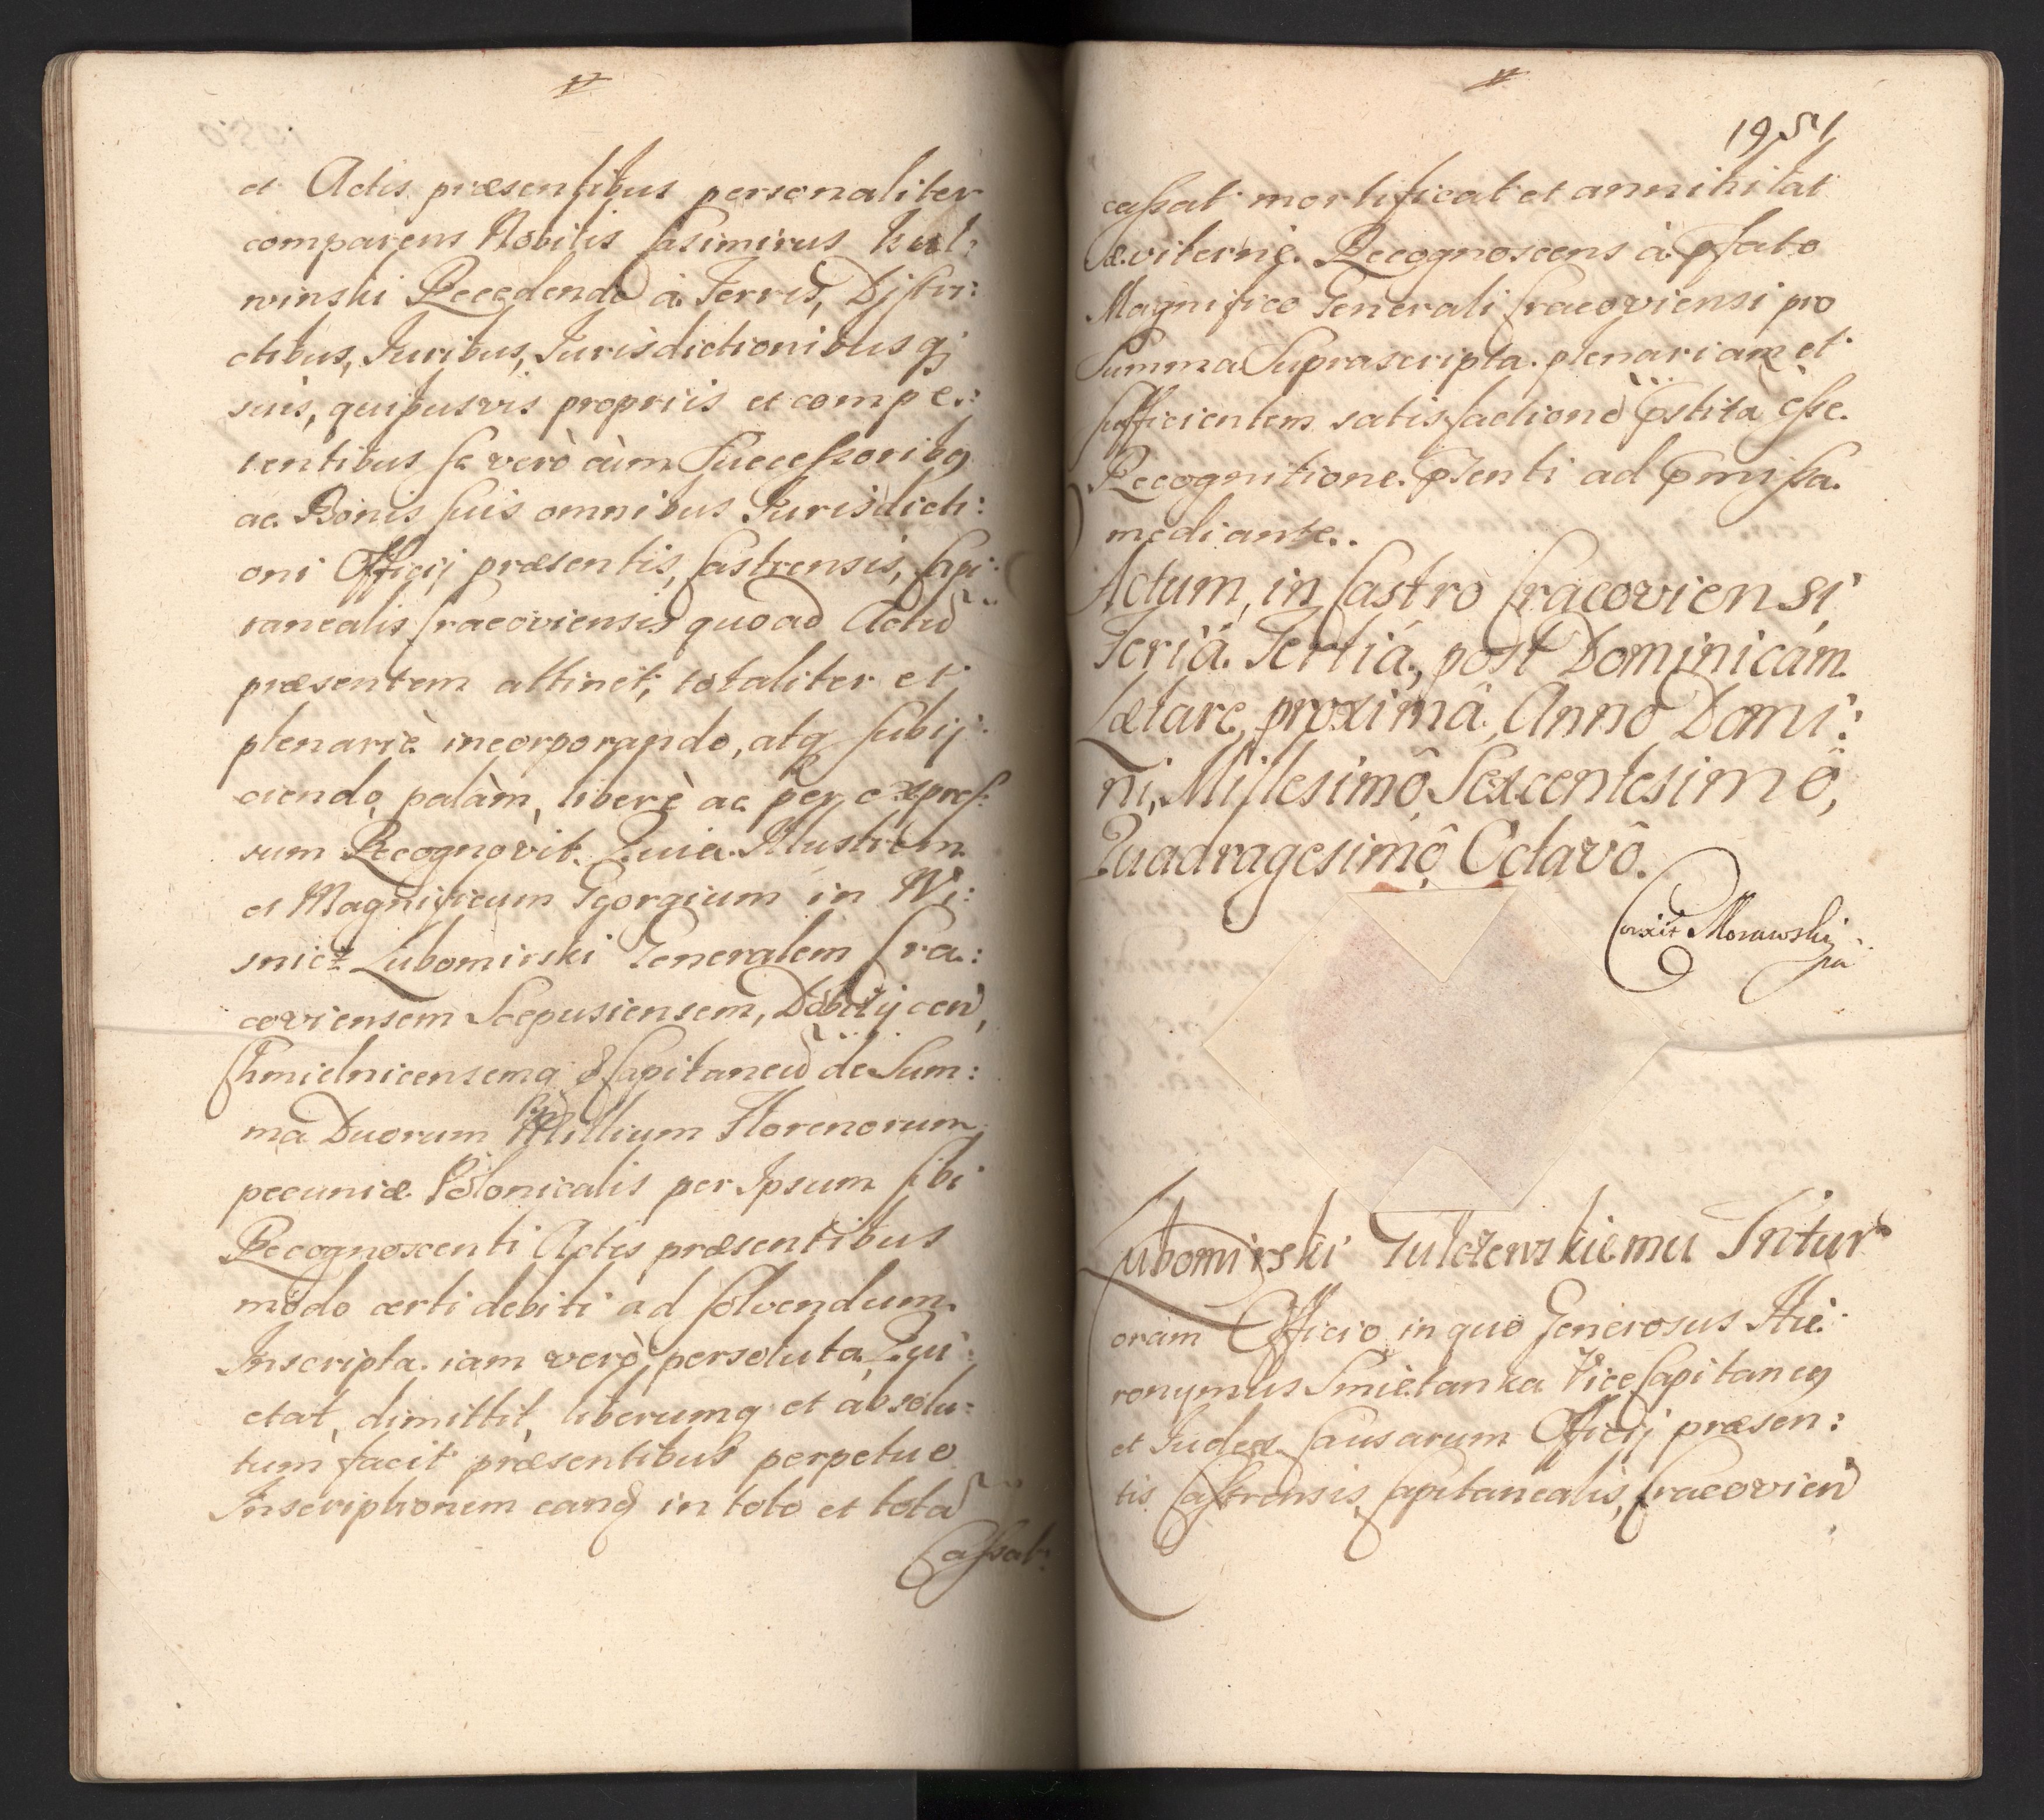 et Actis præsentibus personaliter
comparens Nobilis Casimirus
winski Recedendo à Terris, Distri:
ctibus, Iuribus, Iurisdictionibusq3
suis, quibusvis proprijs et compe:
tentibus se verò cùm Successoribq
ac Bonis suis omnibus Iurisdicti:
oni Officij præsentis, Castrensis, Capi:
tanealis Cracoviensis quoad Actũ
præsentem attinet, totaliter et
plenariè incorporando, atq subij:
ciendo, palàm, liberè ac per expres:
sum Recognovit. Quia Illustrem
et Magnificum Georgium in Wi:
snicz Lubomirski Generalem Cra:
coviensem Scepusiensem, Dobcƶycen̄,
Chmielnicensemq & Capitaneũ de Sum:
ma Duorum Millium Florenorum
pecuniæ Polonicalis per Ipsum sibi
Recognoscenti Actis præsentibus
modo certi debiti ad solvendum
Inscripta. iam verò persoluta Qui:
etat, dimittit, liberumq et absolu:
tum facit præsentibus perpetuo
Inscriptionem eanđ in toto et totã
Cassat:
1951
cassat mortificat et annihilat
æviternè. Recognoscens à p̄fato
Magnifico Generali Cracoviensi pro
Summa Suprascripta. plenariam et
sufficientem satisfactionē p̄stitã esse.
Recognitione p̄senti ad p̄missa.
mediante.
Actum, in Castro Cracoviensi,
Feriâ. Tertiâ, post Dominicám
Lætare, proximâ, Anno Domi:
ni, Millesimô Sexcentesimô,
Quadragesimô Octavô.
Corexit Morawski
Lubomirski Initur
oram Officio in quo Generosus Hie:
ronymus Smietanka Vice Capitaneq
et Iudex Causarum Officij præsen:
tis Castrensis, Capitanealis, Cracovien̄